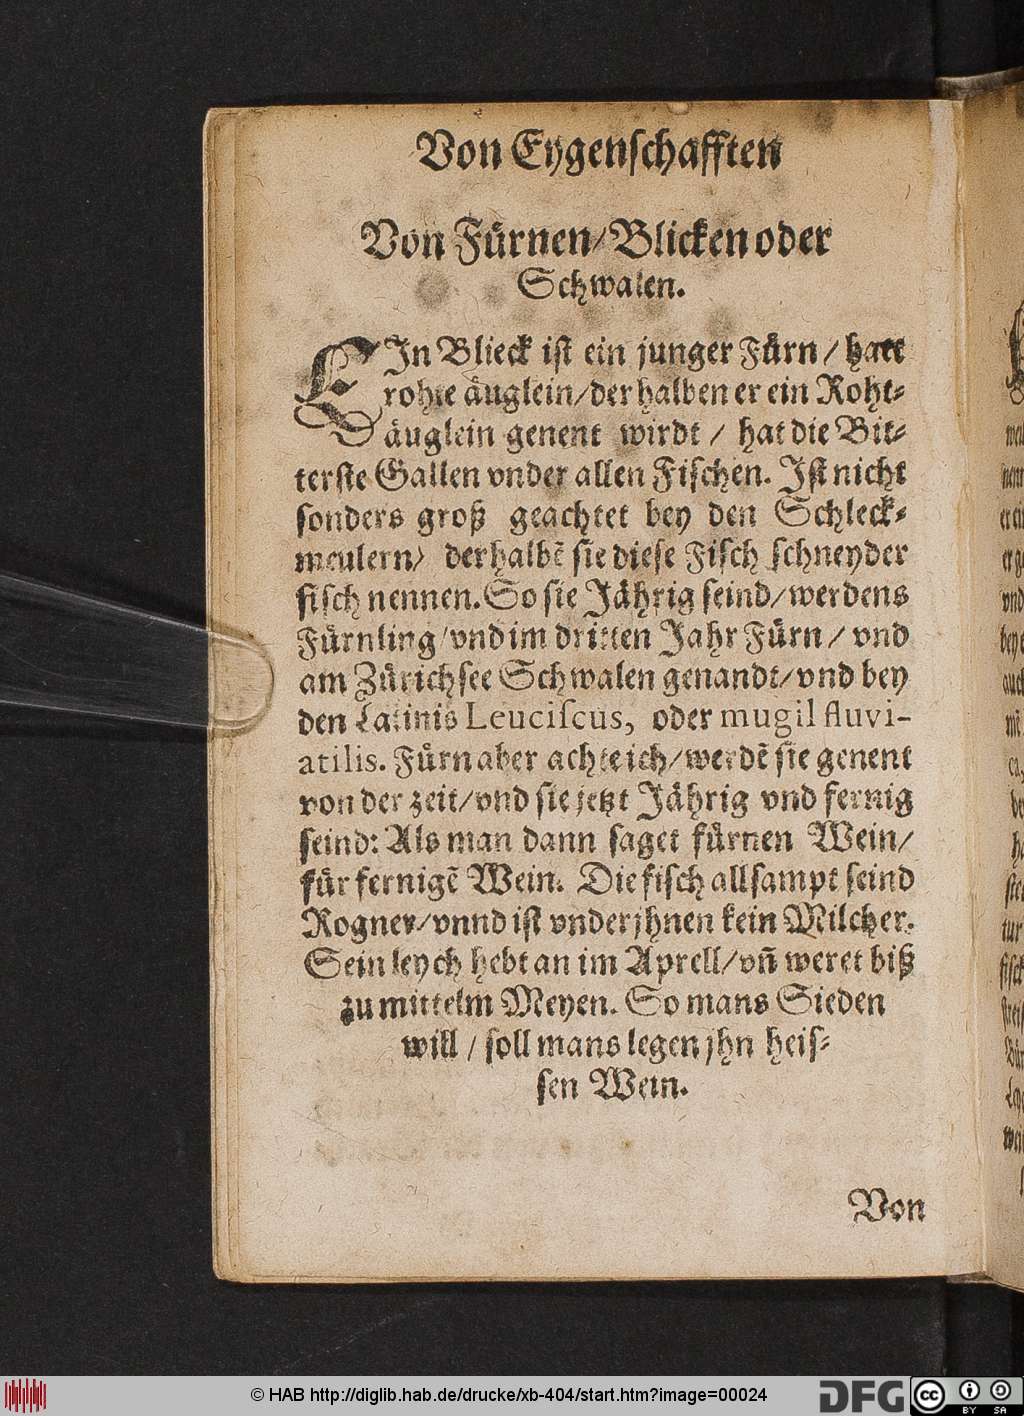 Von Eygenschafften
Von Fürnen/Blicken oder
Schwalen.
EIn Blieck ist ein junger Fürn / hatt
rohte äuglein/derhalben er ein Roht-
äuglein genent wirdt / hat die Bit-
terste Gallen vnder allen Fischen. Ist nicht
sonders groß geachtet bey den Schleck-
meulern/ derhalbē sie diese Fisch schneyder
fisch nennen. So sie Jährig seind/werdens
Fürnling/vnd im dritten Jahr Fürn / vnd
am Zürichsee Schwalen genandt/vnd bey
den Latinis Leuciscus, oder mugil fluvi-
atilis. Fürn aber achte ich/werdē sie genent
von der zeit/vnd sie jetzt Jährig vnd fernig
seind: Als man dann saget fürnen Wein/
für fernigē Wein. Die fisch allsampt seind
Rogner/vnnd ist vnder jhnen kein Milcher.
Sein leych hebt an im Aprell/vn̄ weret biß
zu mittelm Meyen. So mans Sieden
will / soll mans legen jhn heis-
sen Wein.
Von
© HAB http://diglib.hab.de/drucke/xb-404/start.htm?image=00024
DFG
cc
BY SA